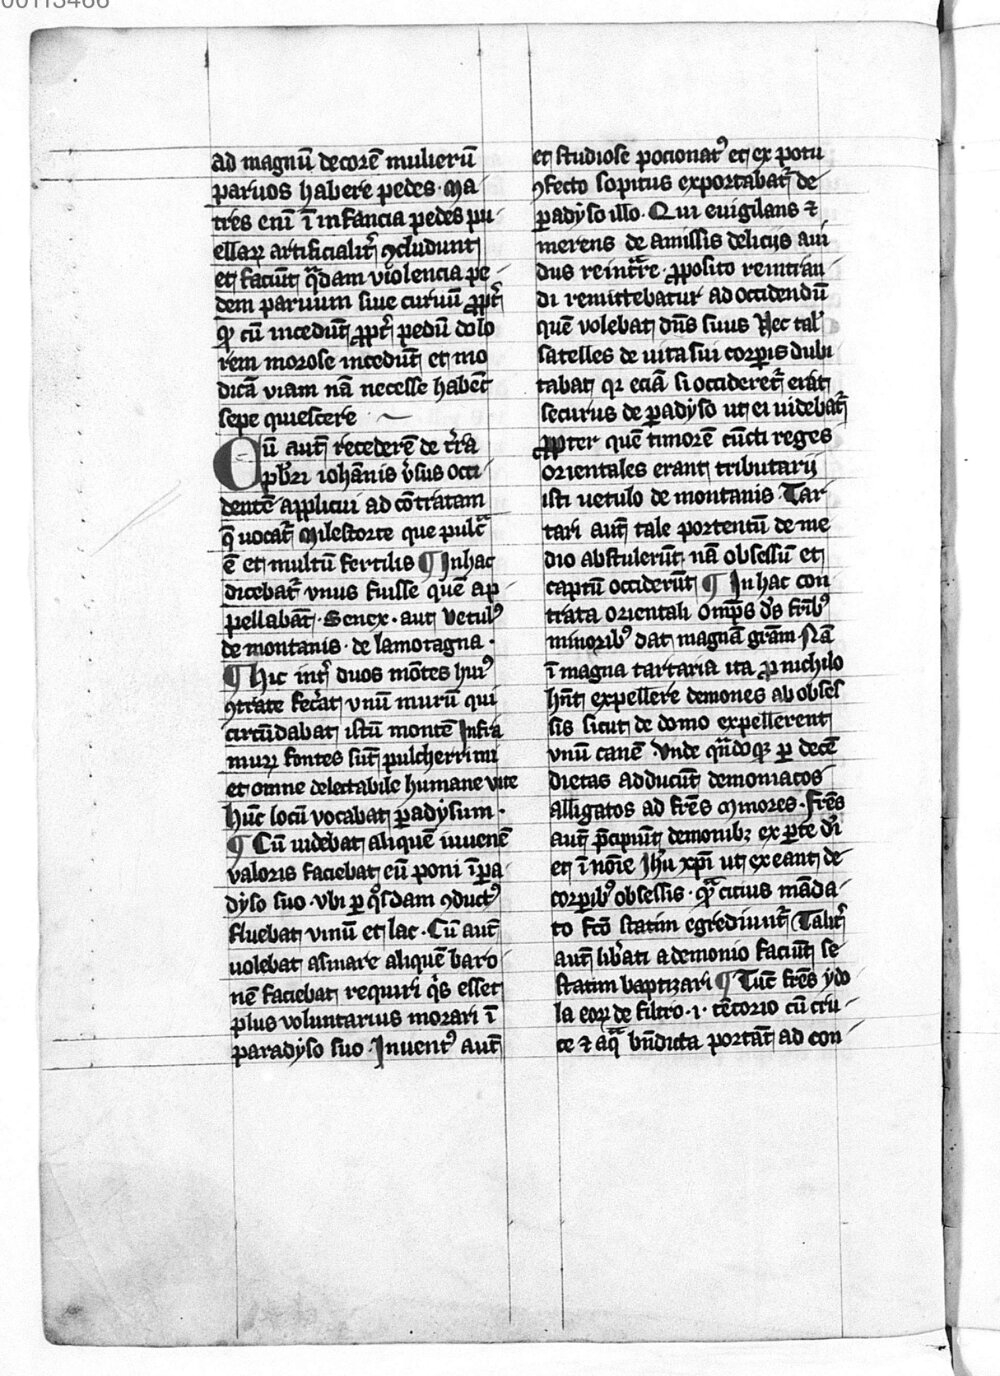 00113466
ad magnū decorē mulierū
paruos habere pedes. Ma
tres enī ī infancia pedes pu
ellaꝝ artificialit᷑ ꝯcludunt
et faciūt q̄dam violencia pe
dem paruum siue curuū ꝓpt᷑
qͥ cū incedūt ꝓpt᷑ pedū dolo
rem morose incedūt et mo
dicā viam nā necesse habēt
sepe quiescere
Cū aut̄ recederē de t̄ra
pb̄ri iohānis v̄sus occi
dentē applicui ad cōtratam
q̄ uocat᷑ Milestorte que pulc̄
ē et multū fertilis ¶ In hac
dicebat᷑ vnus fuisse quē ap
pellabāt. Senex. aut Vetulꝰ
de montanis. de lamotagna.
¶ Hic int᷑ duos mōtes huiꝰ
ꝯtrate fec̄at vnū murū qui
circūdabat istū montē Infra
muꝝ fontes sūt pulcherrimi
et omne delectabile humane vite
hūc locū vocabat padysum.
¶ Cū uidebat aliquē iuuenē
valoris faciebat eū poni ī pa
dyso suo. vbi ꝑ q̊sdam ꝯductꝰ
fluebat vinū et lac. Cū aut̄
uolebat asinare aliquē baro
nē faciebat requiri q̇s esset
plus voluntarius morari ī
paradyso suo. Inuentꝰ aut̄
et studiose pocionatꝰ et ex potu
ꝯfecto sopitus exportabat᷑ de
ꝑadyso illo. Qui euigilans ⁊
merens de amissis delicijs aui
dus reintrare ꝓposito reintran
di remittebatur ad occidendū
quē volebat dn̄s suus Nec tal'
satelles de uita sui corꝑis dubi
tabat qr eciā si occideret᷑ erat
securus de ꝑadyso ut ei uidebat᷑
ꝓpter quē timorē cūcti reges
orientales erant tributarij
isti uetulo de montanis. Tar
tari aut̄ tale portentū de me
dio abstulerūt. nā obsessū et
captū occiderūt ¶ In hac con
trata orientali omp̄s ds̄ fr̄ibꝰ
minoribꝰ dat magnā gr̄am Nā
ī magna tartaria ita ꝓ nichilo
hn̄t expellere demones ab obses
sis sicut de domo expellerent
vnū canē. Vnde qn̄doqꝫ ꝑ decē
dietas adducūt demoniacos
alligatos ad fr̄es minores. fr̄es
aut̄ p̄cipiūt demonibꝫ ex ꝑte dī
et ī noīe Ihū xp̄i ut exeant de
corꝑibꝰ obsessis. quā citius māda
to fc̄o statim egrediunt᷑ Talit᷑
aut̄ lib̄ati a demonio faciūt se
statim baptizari ¶ Tūc fr̄es ydo
la eoꝝ de filtro. i. tētorio cū cru
ce ⁊ aq̄ bn̄dicta portāt ad con